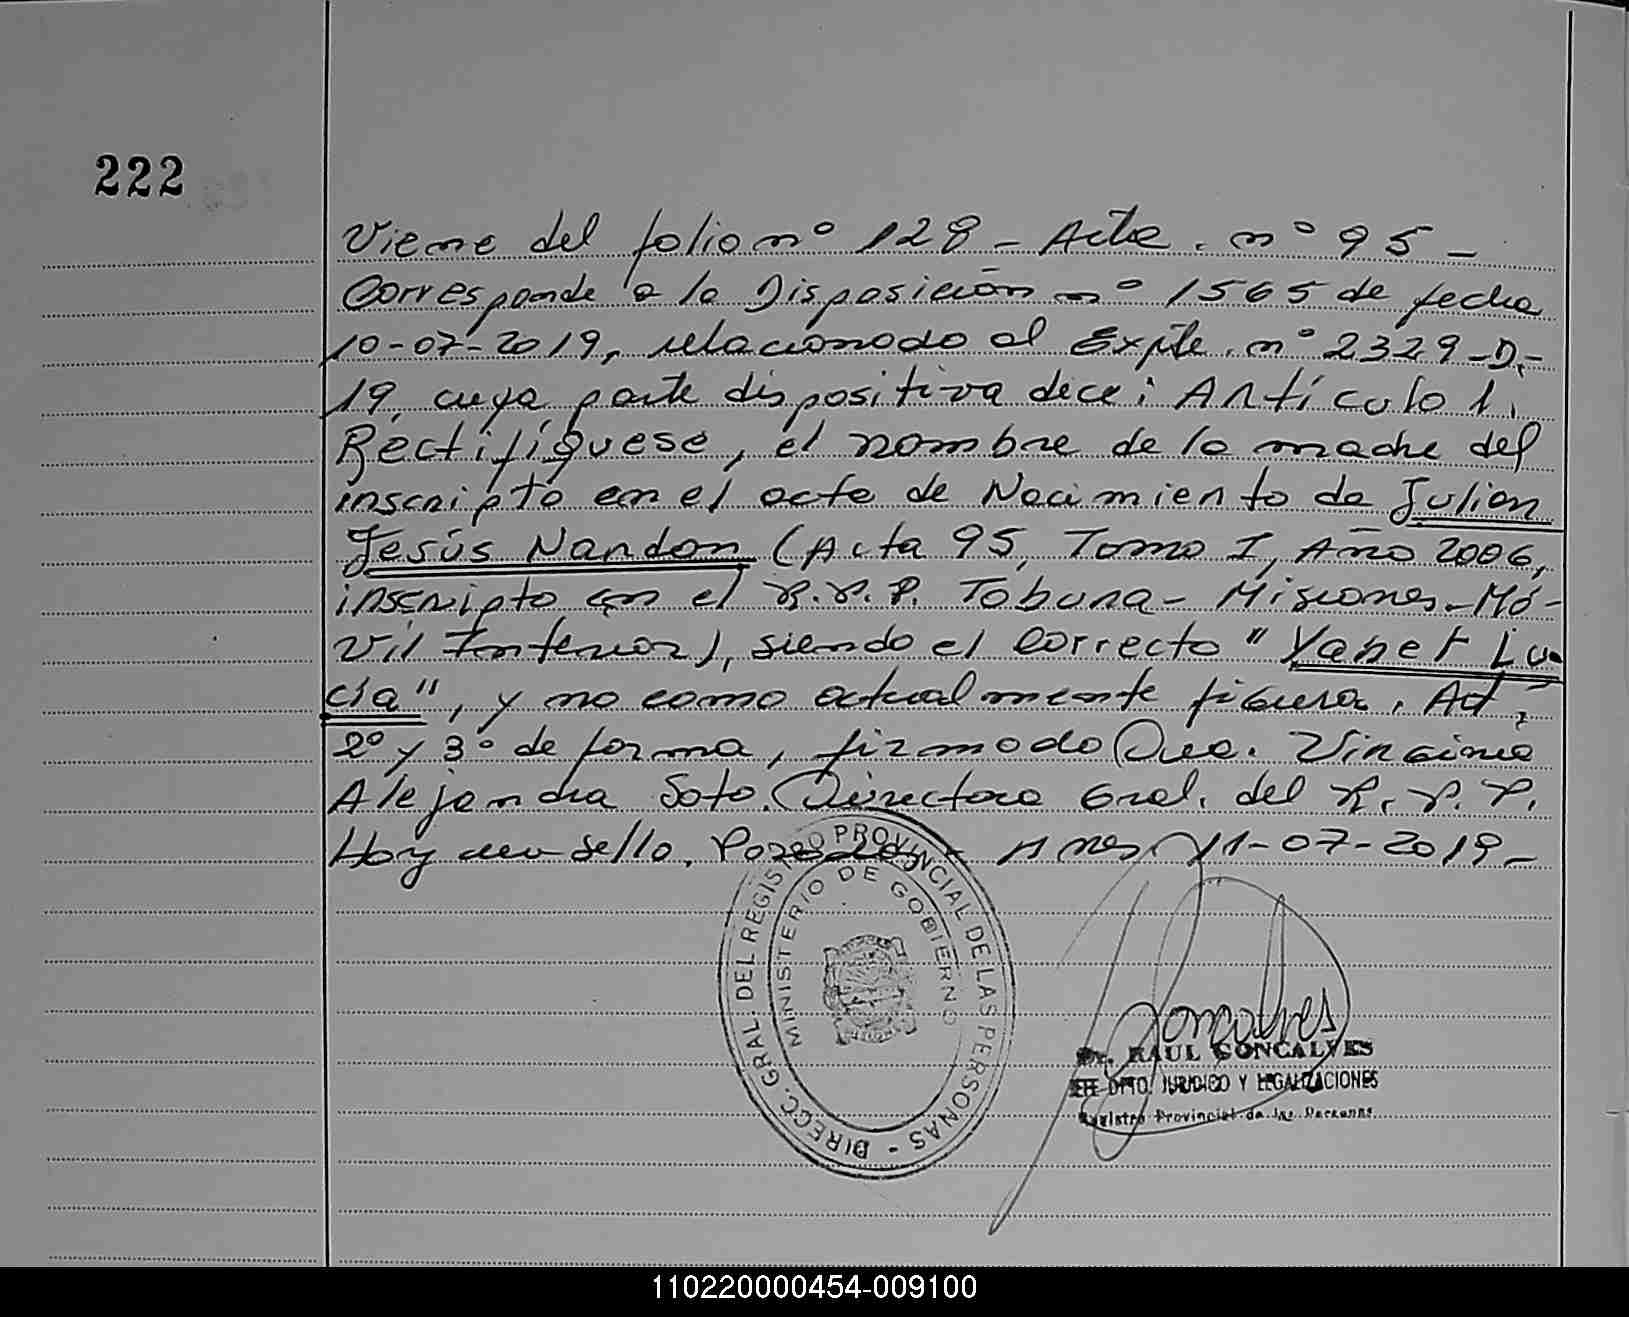 222
Viene del folio nº 128 - Acta. nº 95 -
Corresponde a la Disposición nº 1565 de fecha
10-07-2019, relacionado al Expte. nº 2329-D-
19, cuya parte dispositiva dice: Artículo 1.
Rectifíquese, el nombre de la madre del
inscripto en el acta de Nacimiento de Julian
Jesús Nandon (Acta 95, Tomo I, Año 2006,
inscripto en el R.P.P. Tobuna - Misiones - Mó-
vil Interior), siendo el correcto "Yanet Lu-
cia", y no como actualmente figura. Art.
2º y 3º de forma, firmado Dra. Virginia
Alejandra Soto. Directora Gral. del R.P.P.
Hay un sello. Posadas Mnes. 11-07-2019-
DIRECC. GRAL. DEL REGISTRO PROVINCIAL DE LAS PERSONAS -
MINISTERIO DE GOBIERNO
Goncalves
Dr. RAUL GONCALVES
JEFE DPTO. JURIDICO Y LEGALIZACIONES
Registro Provincial de las Personas
110220000454-009100